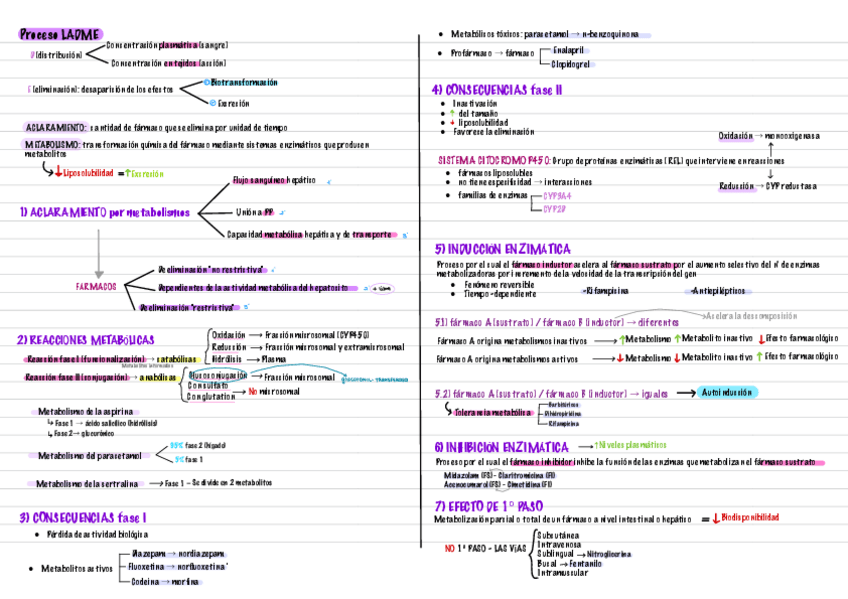 Proceso LADME
D (distribución)
Concentración plasmática (sangre)
Concentración en tejidos (acción)
E (eliminación): desaparición de los efectos
① Biotransformación
② Excreción
ACLARAMIENTO: cantidad de fármaco que se elimina por unidad de tiempo
METABOLISMO: transformación química del fármaco mediante sistemas enzimáticos que producen
metabolitos
↓Liposolubilidad = ↑Excreción
1) ACLARAMIENTO por metabolismos
Flujo sanguíneo hepático
Unión a PP
Capacidad metabólica hepática y de transporte
FÁRMACOS
De eliminación "no restrictiva"
Dependientes de la actividad metabólica del hepatocito
De eliminación "restrictiva"
2) REACCIONES METABÓLICAS
Reacción fase I (funcionalización) → catabólicas
Oxidación → Fracción microsomal (CYP450)
Reducción → Fracción microsomal y extramicrosomal
Hidrólisis → Plasma
Reacción fase II (conjugación) → anabólicas
Glucoconjugación → Fracción microsomal
Con sulfato
Con glutation
→ NO microsomal
Metabolismo de la aspirina
↳ Fase 1 → ácido salicílico (hidrólisis)
↳ Fase 2 → glucurónico
Metabolismo del paracetamol
95% fase 2 (hígado)
5% fase 1
Metabolismo de la sertralina → Fase 1 - Se divide en 2 metabolitos
3) CONSECUENCIAS fase I
• Pérdida de actividad biológica
• Metabolitos activos
Diazepam → nordiazepam
Fluoxetina → norfluoxetina
Codeína → morfina
• Metabolitos tóxicos: paracetamol → n-benzoquinona
• Profármaco → fármaco
Enalapril
Clopidogrel
4) CONSECUENCIAS fase II
• Inactivación
• ↑ del tamaño
• ↓ liposolubilidad
• Favorece la eliminación
Oxidación → monooxigenasa
SISTEMA CITOCROMO P450: Grupo de proteínas enzimáticas (REL) que interviene en reacciones
Reducción → CYP reductasa
• fármacos liposolubles
• no tiene especificidad → interacciones
• familias de enzimas
CYP3A4
CYP2D
5) INDUCCIÓN ENZIMÁTICA
Proceso por el cual el fármaco inductor acelera al fármaco sustrato por el aumento selectivo del nº de enzimas
metabolizadoras por incremento de la velocidad de la transcripción del gen
• Fenómeno reversible
• Tiempo-dependiente
-Rifampicina
-Antiepilépticos
Acelera la descomposición
5.1) fármaco A (sustrato) / fármaco B (inductor) → diferentes
Fármaco A origina metabolitos inactivos → ↑Metabolismo ↑Metabolito inactivo ↓Efecto farmacológico
Fármaco A origina metabolitos activos → ↓Metabolismo ↓Metabolito activo ↑Efecto farmacológico
5.2) fármaco A (sustrato) / fármaco B (inductor) → iguales → Autoinducción
Tolerancia metabólica
Barbitúricos
Rifampicina
6) INHIBICIÓN ENZIMÁTICA → ↑Niveles plasmáticos
Proceso por el cual el fármaco inhibidor inhibe la función de las enzimas que metaboliza n el fármaco sustrato
Midazolam (FS) - Claritromicina (FI)
Acenocumarol (FS) - Cimetidina (FI)
7) EFECTO DE 1º PASO
Metabolización parcial o total de un fármaco a nivel intestinal o hepático = ↓Biodisponibilidad
NO 1º PASO - LAS VÍAS
Subcutánea
Intravenosa
Sublingual → Nitroglicerina
Bucal → Fentanilo
Intramuscular